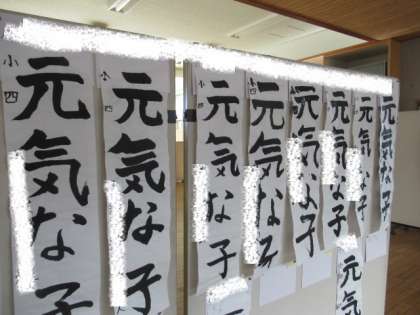 小四
元気な子
小四
元気な子
小四
元気な子
小四
元気な子
元気な子
元気な子
元気な子
元気な子
元気